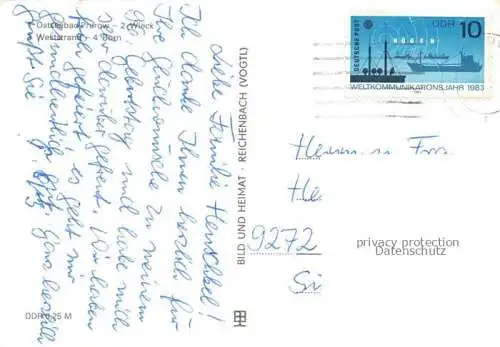 Ostseebad Prerow – 2 Wieck
Weststrand – 4 Born
Liebe Familie Hentschel!
Ich danke Ihnen herzlich für
Ihre Glückwünsche zu meinem
Geburtstag und habe mich
sehr darüber gefreut. Wir haben
gefeiert, es geht mir
gut. Ganz herzlich
grüßt Sie
DDR 0,25 M
BILD UND HEIMAT · REICHENBACH (VOGTL)
DEUTSCHE POST
DDR 10
WELTKOMMUNIKATIONSJAHR 1983
Herrn u. Fra
He
9272
Si
privacy protection
Datenschutz